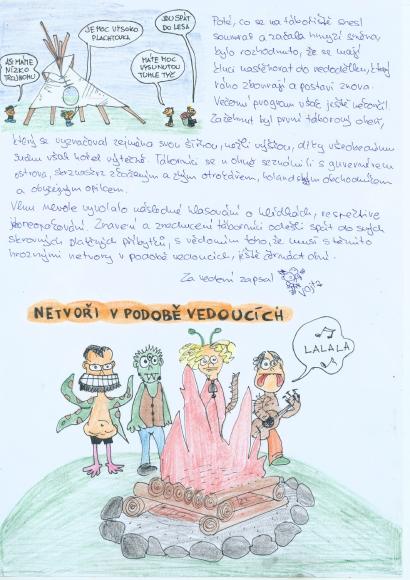 ASI MÁTE
NÍZKO
TROJNOHU
JE MOC VYSOKO
PLACHTOVKA
JDU SPÁT
DO LESA
MÁTE MOC
VYSUNUTOU
TUHLE TYČ
Poté, co se na tábořiště snesl
soumrak a začala
bylo rozhodnuto, že se mají
kluci nastěhovat do
ráno zbourají a postaví znova.
Večerní program však ještě nekončil.
Zažehnut byl první táborový oheň,
který se vyznačoval zejména svou šířkou, nežli výškou, díky
však hořel výtečně. Táborníci se u ohně seznámili s guvernérem
ostrova, a zlým otrokářem, holandským obchodníkem
a obyčejným opilcem.
Vlnu nevole vyvolalo následné hlasování o hlídkách, respektive
Znavení a znechucení táborníci odešli spát do svých
skrovných příbytků, s vědomím toho, že musí s těmito
hroznými netvory v podobě vedoucích, ještě čtrnáct dní.
Za vedení zapsal Vojta
NETVOŘI V PODOBĚ VEDOUCÍCH
LALALA